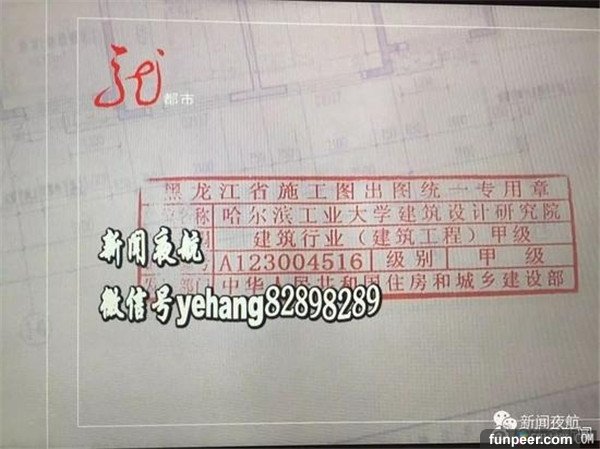 都市
黑龙江省施工图出图统一专用章
名称 哈尔滨工业大学建筑设计研究院
建筑行业（建筑工程）甲级
号 A123004516 级别 甲级
部门 中华人民共和国住房和城乡建设部
新闻夜航
微信号yehang82898289
新闻夜航
funpeer.com